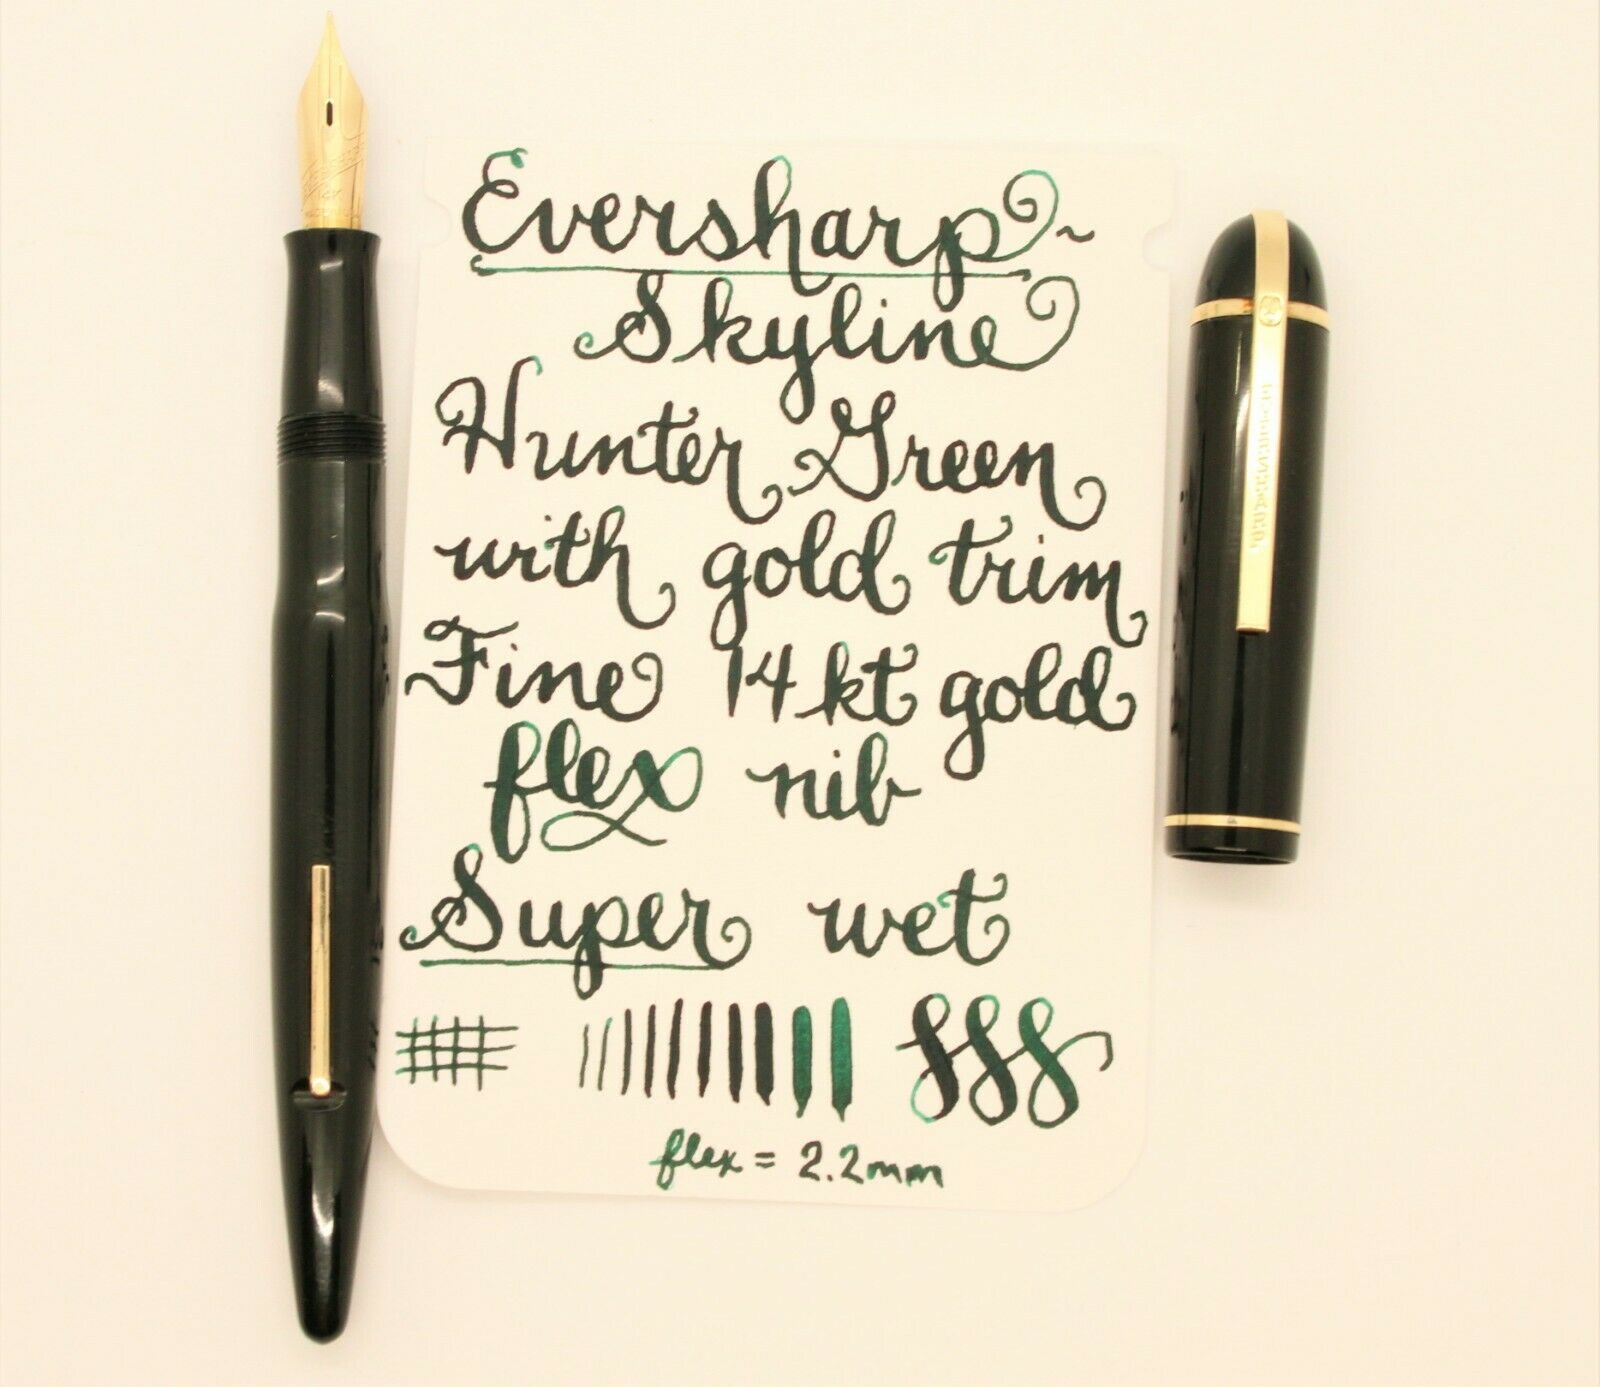 Eversharp~
Skyline
Hunter Green
with gold trim
Fine 14kt gold
flex nib
Super wet
flex = 2.2mm